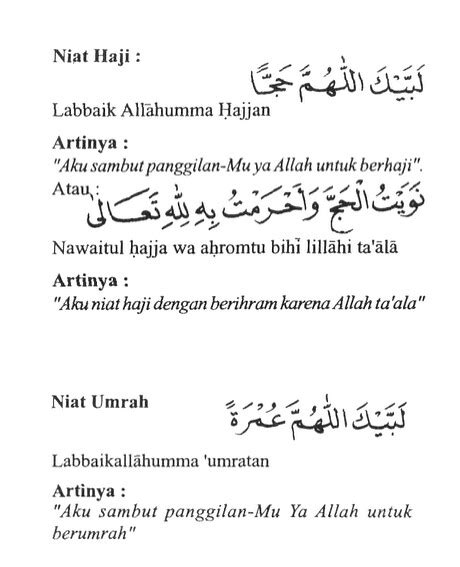 Niat Haji :
لَبَّيْكَ اللّٰهُمَّ حَجًّا
Labbaik Allāhumma Ḥajjan
Artinya :
"Aku sambut panggilan-Mu ya Allah untuk berhaji".
Atau :
نَوَيْتُ الْحَجَّ وَأَحْرَمْتُ بِهِ لِلّٰهِ تَعَالَىٰ
Nawaitul ḥajja wa aḥromtu bihī lillāhi ta'ālā
Artinya :
"Aku niat haji dengan berihram karena Allah ta'ala"
Niat Umrah
لَبَّيْكَ اللّٰهُمَّ عُمْرَةً
Labbaikallāhumma 'umratan
Artinya :
"Aku sambut panggilan-Mu Ya Allah untuk
berumrah"